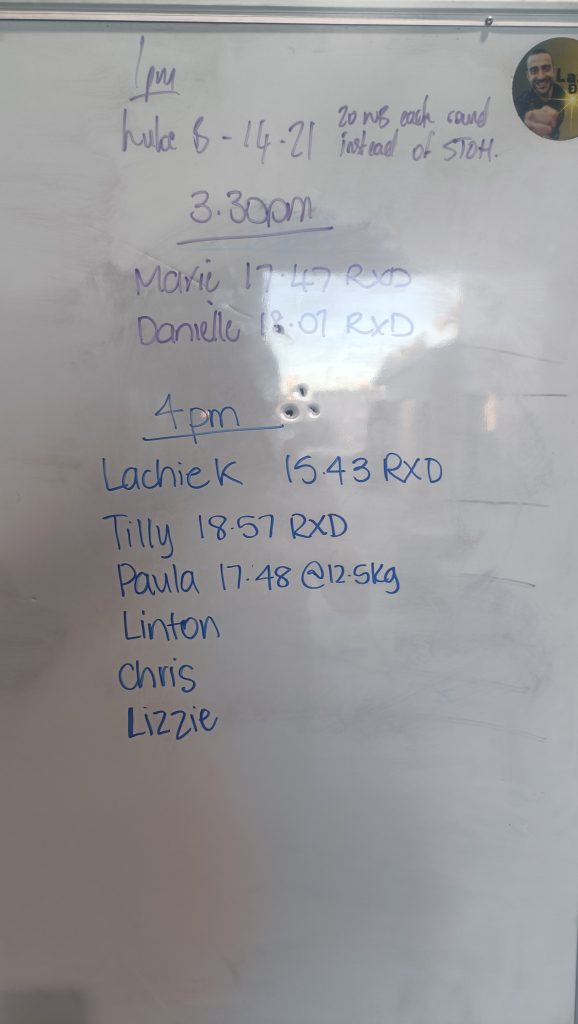 1pm
Luke B - 14.21 20 each round
instead of STOH.
3.30pm
Marie 17.47 RXD
Danielle 18.07 RXD
4pm
Lachie K 15.43 RXD
Tilly 18.57 RXD
Paula 17.48 @12.5kg
Linton
Chris
Lizzie